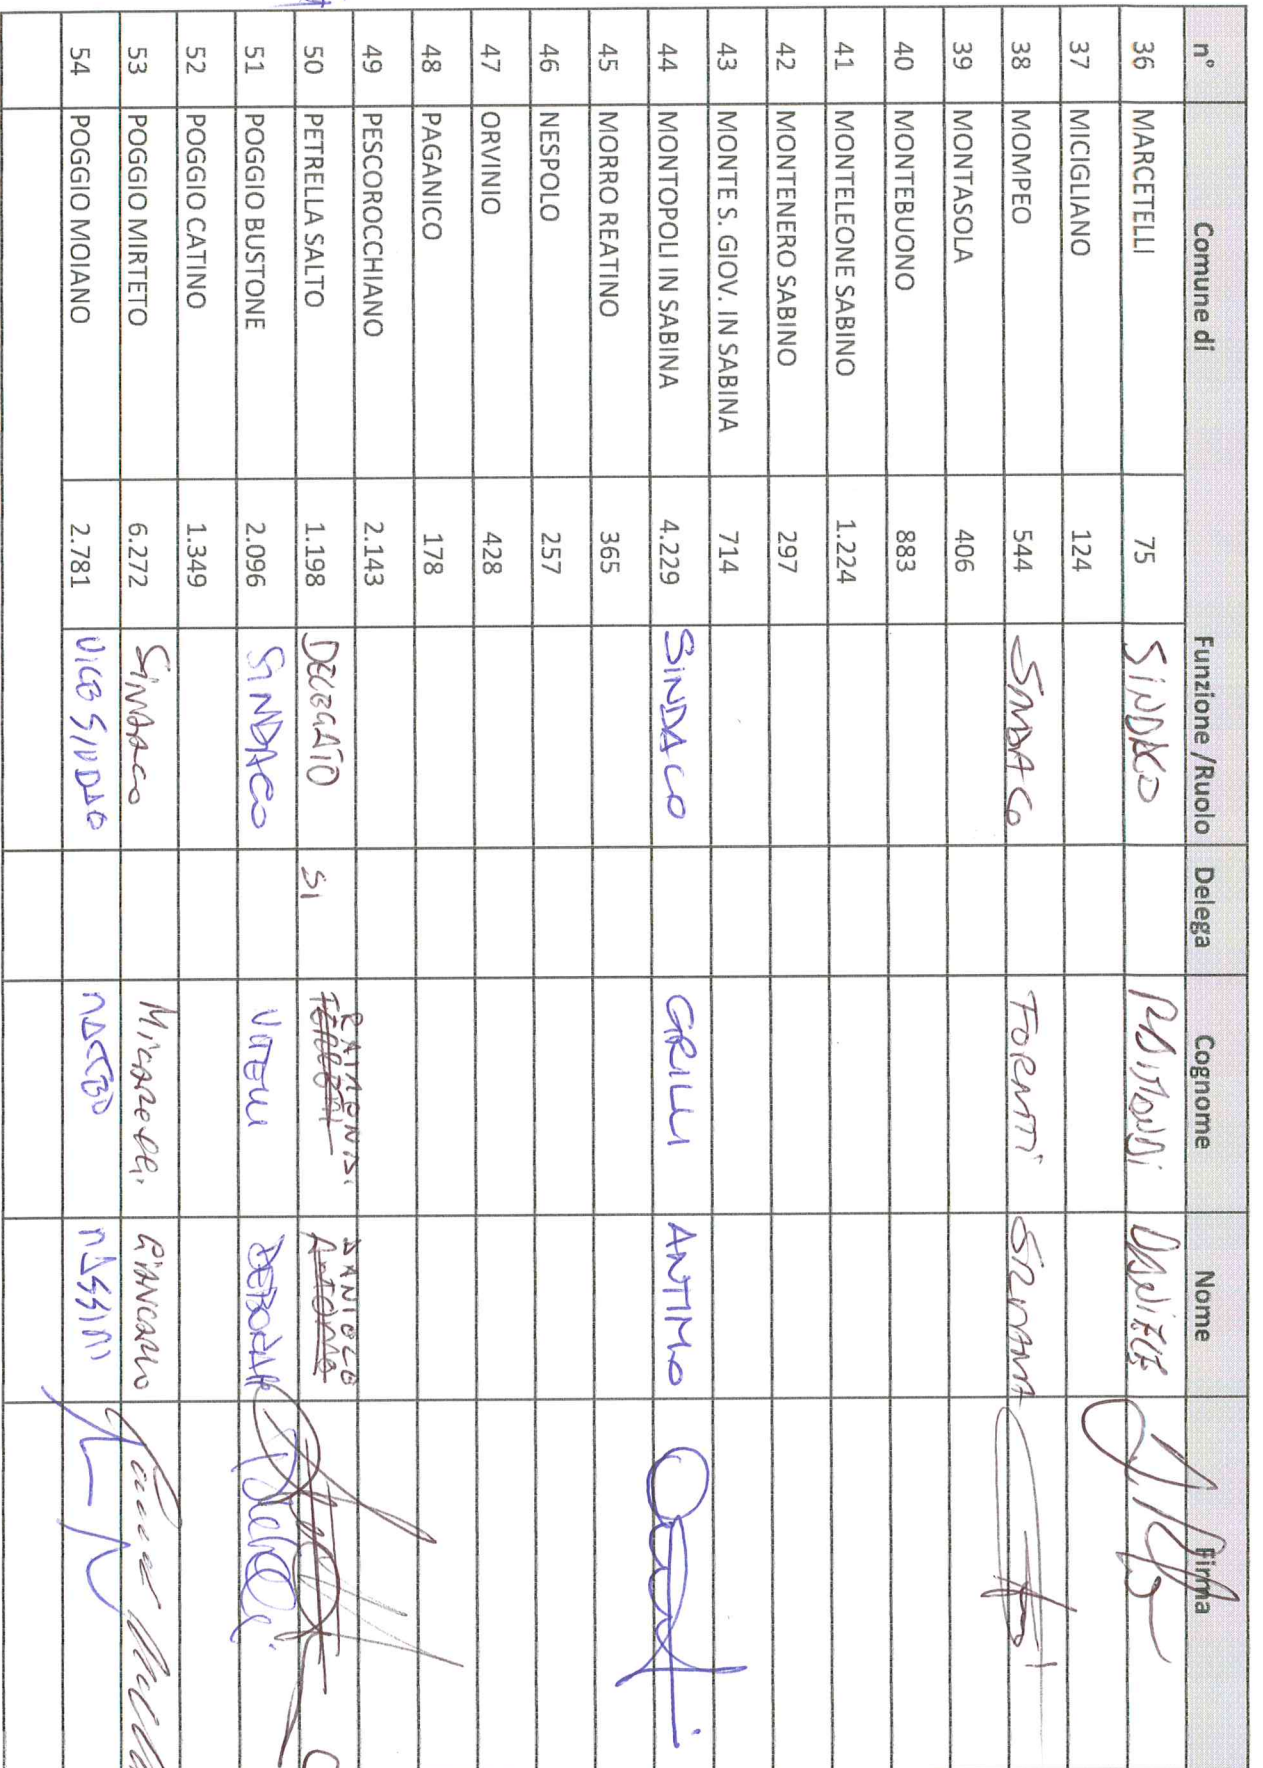 n° Comune di Funzione /Ruolo Delega Cognome Nome Firma
36 MARCETELLI 75 SINDACO RAIMONDI DANIELE
37 MICIGLIANO 124
38 MOMPEO 544 SINDACO FORMATI SILVANA
39 MONTASOLA 406
40 MONTEBUONO 883
41 MONTELEONE SABINO 1.224
42 MONTENERO SABINO 297
43 MONTE S. GIOV. IN SABINA 714
44 MONTOPOLI IN SABINA 4.229 SINDACO GRILLI ANTIMO
45 MORRO REATINO 365
46 NESPOLO 257
47 ORVINIO 428
48 PAGANICO 178
49 PESCOROCCHIANO 2.143
50 PETRELLA SALTO 1.198 DELEGATO SI RAIMONDI DANIELE
51 POGGIO BUSTONE 2.096 SINDACO VITELLI DEBORAH
52 POGGIO CATINO 1.349
53 POGGIO MIRTETO 6.272 SINDACO MICARELLI GIANCARLO
54 POGGIO MOIANO 2.781 VICE SINDACO